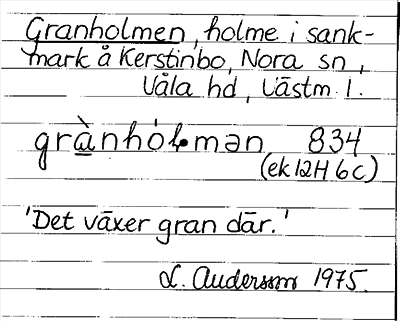 Granholmen, holme i sank-
mark å Kerstinbo, Nora sn,
Våla hd, Västm. l.
grà̲nhól·mən 834
(ek 12H 6c)
'Det växer gran där.'
L. Anderson 1975.